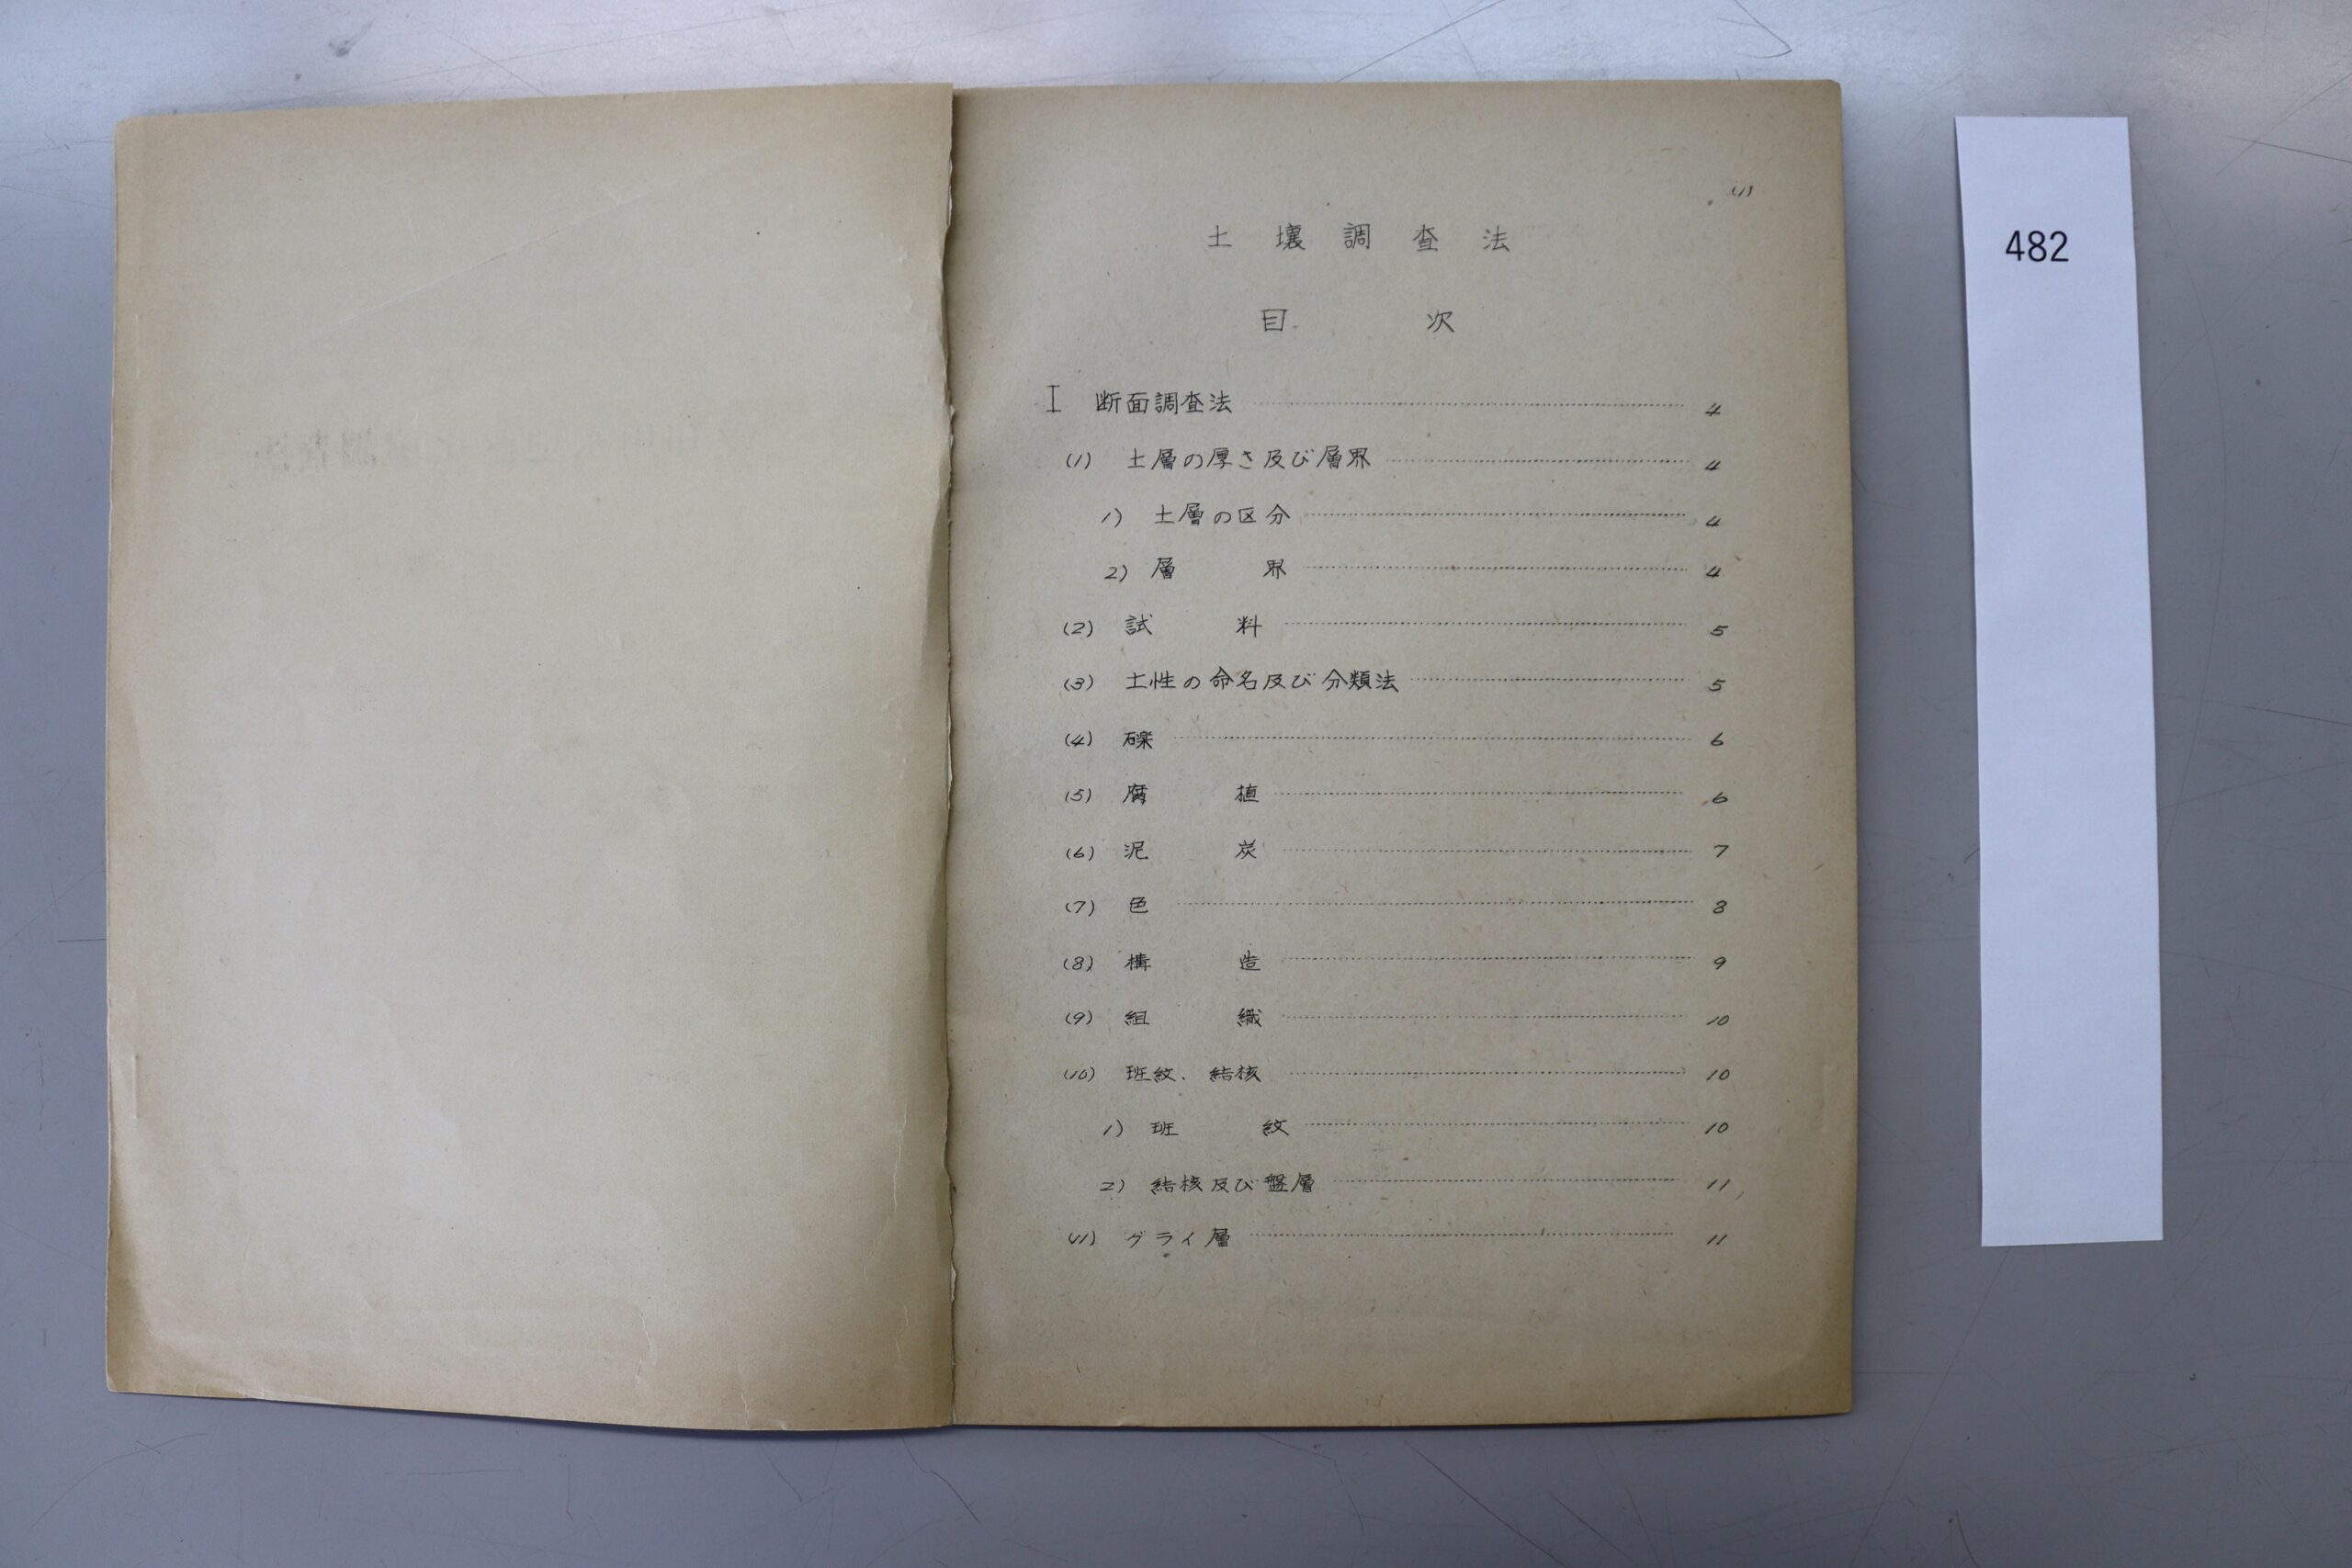 (1)
土壌調査法
目次
I 断面調査法 4
(1) 土層の厚さ及び層界 4
1) 土層の区分 4
2) 層界 4
(2) 試料 5
(3) 土性の命名及び分類法 5
(4) 礫 6
(5) 腐植 6
(6) 泥炭 7
(7) 色 8
(8) 構造 9
(9) 組織 10
(10) 班紋、結核 10
1) 班紋 10
2) 結核及び盤層 11
(11) グライ層 11
482